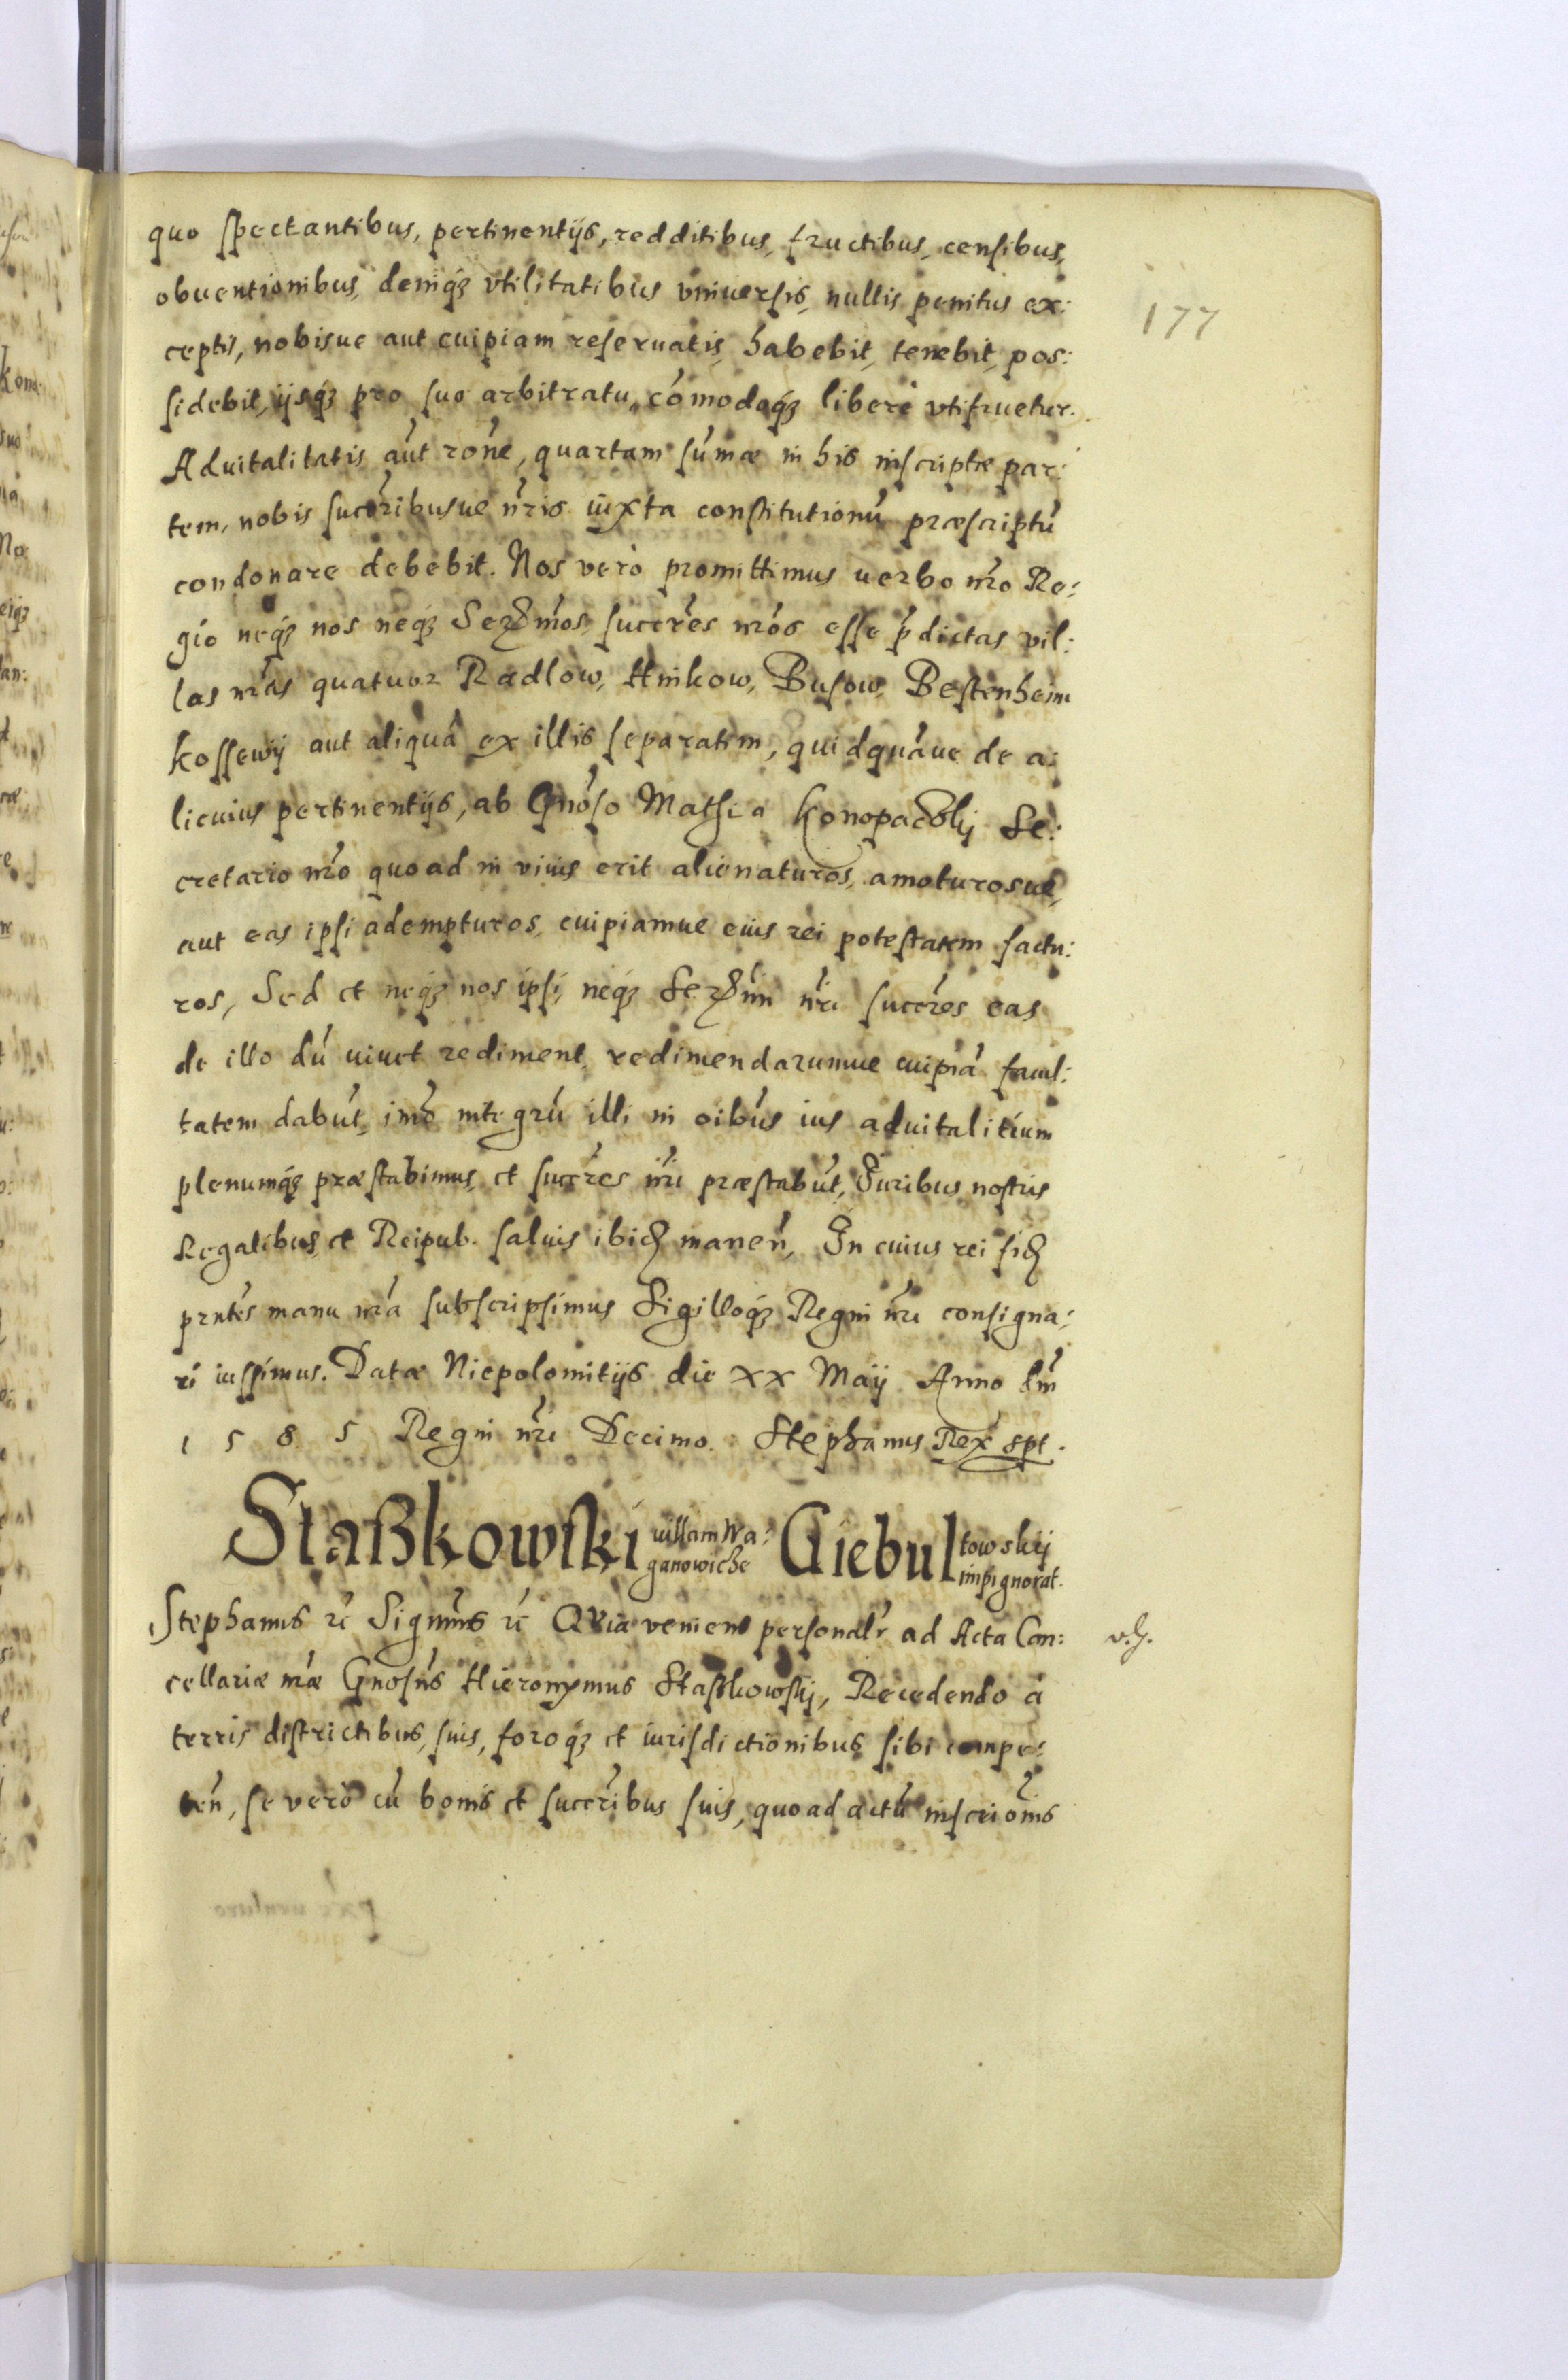 quo spectantibus, pertinentijs, redditibus, fructibus, censibus,
obuentionibus, deniq₃ vtilitatibus vniuersis, nullis penitus ex:
177
ceptis, nobisue aut cuipiam reseruatis, habebit, tenebit, pos:
sidebit, ijsq₃ pro suo arbitratu, cōmodoq₃ liberè vtifruetur.
Aduitalitatis aūt rōne, quartam sūmæ in his inscriptæ par:
tem, nobis succr̄ibusue nr̄is iuxta constitutionū præscriptū
condonare debebit. Nos verò promittimus uerbo nr̄o Re:
gio neq₃ nos neq₃ Ser̄mos succr̄es nr̄os esse p̄dictas vil:
las nr̄as quatuor Radlow, Hnikow, Busow, Bestenheim
Kossewij aut aliquā ex illis separatim, quidquāue de a:
licuius pertinentijs, ab Gnōso Mathia Konopaczkij Se:
cretario nr̄o quoad in viuis erit alienaturos, amoturosue,
aut eas ipsi adempturos, cuipiamue eius rei potestatem factu:
ros, Sed et neq₃ nos ipsi, neq₃ Ser̄mi nr̄i succr̄es eas
de illo dū viuet rediment, redimendarumue cuipiā facul:
tatem dabūt, imò integrū illi in oībus ius aduitalitium
plenumq₃ præstabimus, et succr̄es nr̄i præstabūt, Iuribus nostris
Regalibus, et Reipub. saluis ibid manen̄, In cuius rei fid
prn̄tes manu nr̄a subscripsimus Sigilloq₃ Regni nr̄i consigna:
ri iussimus. Datæ Niepolomitijs die XX Maij Anno Dn̄i
1585 Regni nr̄i Decimo. Stephanus Rex spt.
Staßkowski villam Wa: Giebultowskij
ganowicze impignorat.
Stephanus rc̄ Signūms rc̄ Quia veniens personalr̄ ad Acta Can: v.h.
cellariæ nr̄æ Gnosūs Hieronymus Staßkowskij, Recedendo à
terris districtibus, suis, foroq₃ et iurisdictionibus sibi compe:
ten̄, se verò cū bonis et succr̄ibus suis, quoad actū inscriōnis